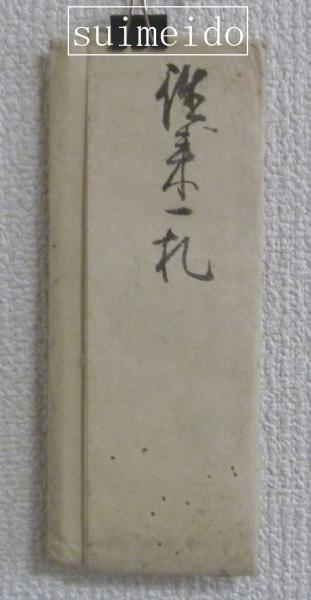 suimeido
往来一札